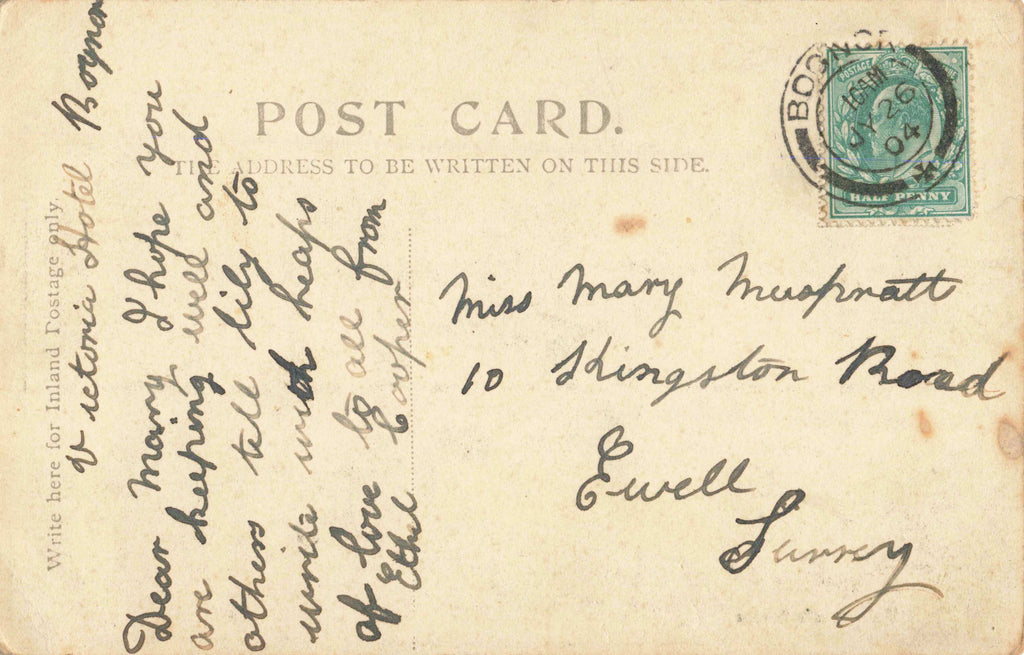 POST CARD.
THE ADDRESS TO BE WRITTEN ON THIS SIDE.
Write here for Inland Postage only.
Victoria Hotel Bognor
Dear Mary I hope you
are keeping well and
others tell lily to
write with heaps
of love to all from
Ethel Cooper
BOGNOR
10 AM
JY 26
04
POSTAGE
HALF PENNY
Miss Mary Muspratt
10 Kingston Road
Ewell
Surrey